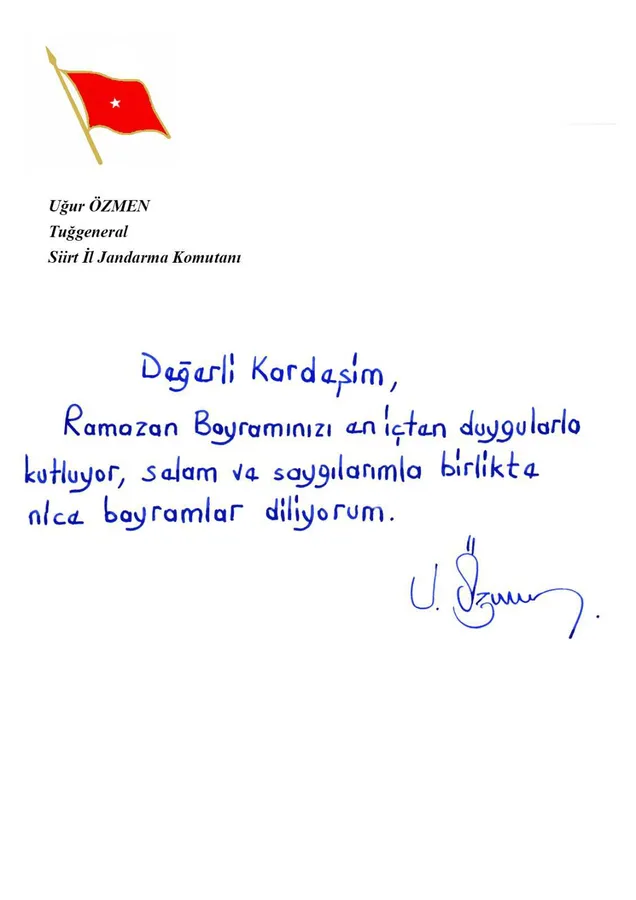 Uğur ÖZMEN
Tuğgeneral
Siirt İl Jandarma Komutanı
Değerli Kardeşim,
Ramazan Bayramınızı en içten duygularla
kutluyor, selam ve saygılarımla birlikte
nice bayramlar diliyorum.
U. Özmen